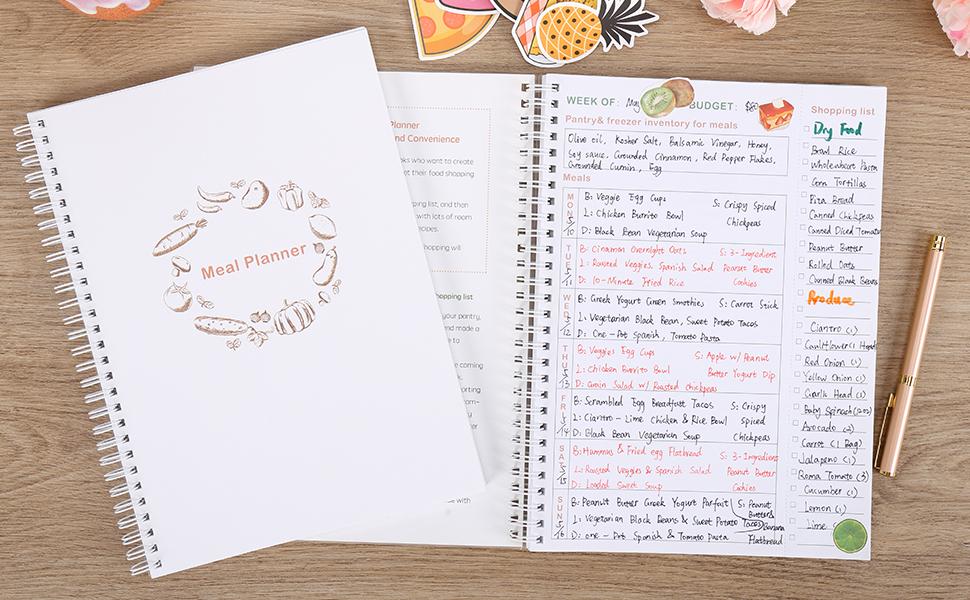 Meal Planner
Planner
nd Convenience
oks who want to create
et their food shopping
ping list, and then
with lots of room
cipes.
hopping will
hopping list
your pantry,
nd made a
e to
e coming
k for
orting
om-
ter
e with
WEEK OF: May BUDGET: $80
Pantry& freezer inventory for meals
Olive oil, Kosher Salt, Balsamic Vinegar, Honey,
Soy sauce, Grounded Cinnamon, Red Pepper Flakes,
Grounded Cumin, Egg
Meals
MON 5/10
B: Veggie Egg Cups S: Crispy Spiced
L: Chicken Burrito Bowl Chickpeas
D: Black Bean Vegetarian Soup
TUE 5/11
B: Cinnamon Overnight Oats S: 3-Ingredient
L: Roasted Veggies, Spanish Salad Peanut Butter
D: 10-Minute Fried Rice Cookies
WED 5/12
B: Greek Yogurt Green Smothies S: Carrot Stick
L: Vegetarian Black Bean, Sweet Potato Tacos
D: One-Pot Spanish, Tomato Pasta
THU 5/13
B: Veggies Egg Cups S: Apple w/ Peanut
L: Chicken Burrito Bowl Butter Yogurt Dip
D: Grain Salad w/ Roasted chickpeas
FRI 5/14
B: Scrambled Egg Breadfast Tacos S: Crispy
L: Ciantro-Lime Chicken & Rice Bowl Spiced
D: Black Bean Vegetarian Soup Chickpeas
SAT 5/15
B: Hummus & Fried egg Flatbread S: 3-Ingredient
L: Roasted Veggies & Spanish Salad Peanut Butter
D: Loaded Sweet Soup Cookies
SUN 5/16
B: Peanult Butter Greek Yogurt Parfait S: Peanut
Butter&
L: Vegetarian Black Beans & Sweet Potato Tacos Banana
D: one-Pot Spanish & Tomato Pasta Flatbread
Shopping list
Dry Food
Brawl Rice
Wholewheat Pasta
Corn Tortillas
Pita Bread
Canned Chickpeas
Canned Diced Tomatoes
Peanut Butter
Rolled Oats
Canned Blank Beans
Produce
Ciantro (1)
Cauliflower (1 Head
Red Onion (1)
Yellow Onion (1)
Garlic Head (1)
Baby Spinach
Avocado (2)
Carrot (1 Bag)
Jalapeno (1)
Roma Tomato (3)
Cucumber (1)
Lemon (1)
Lime